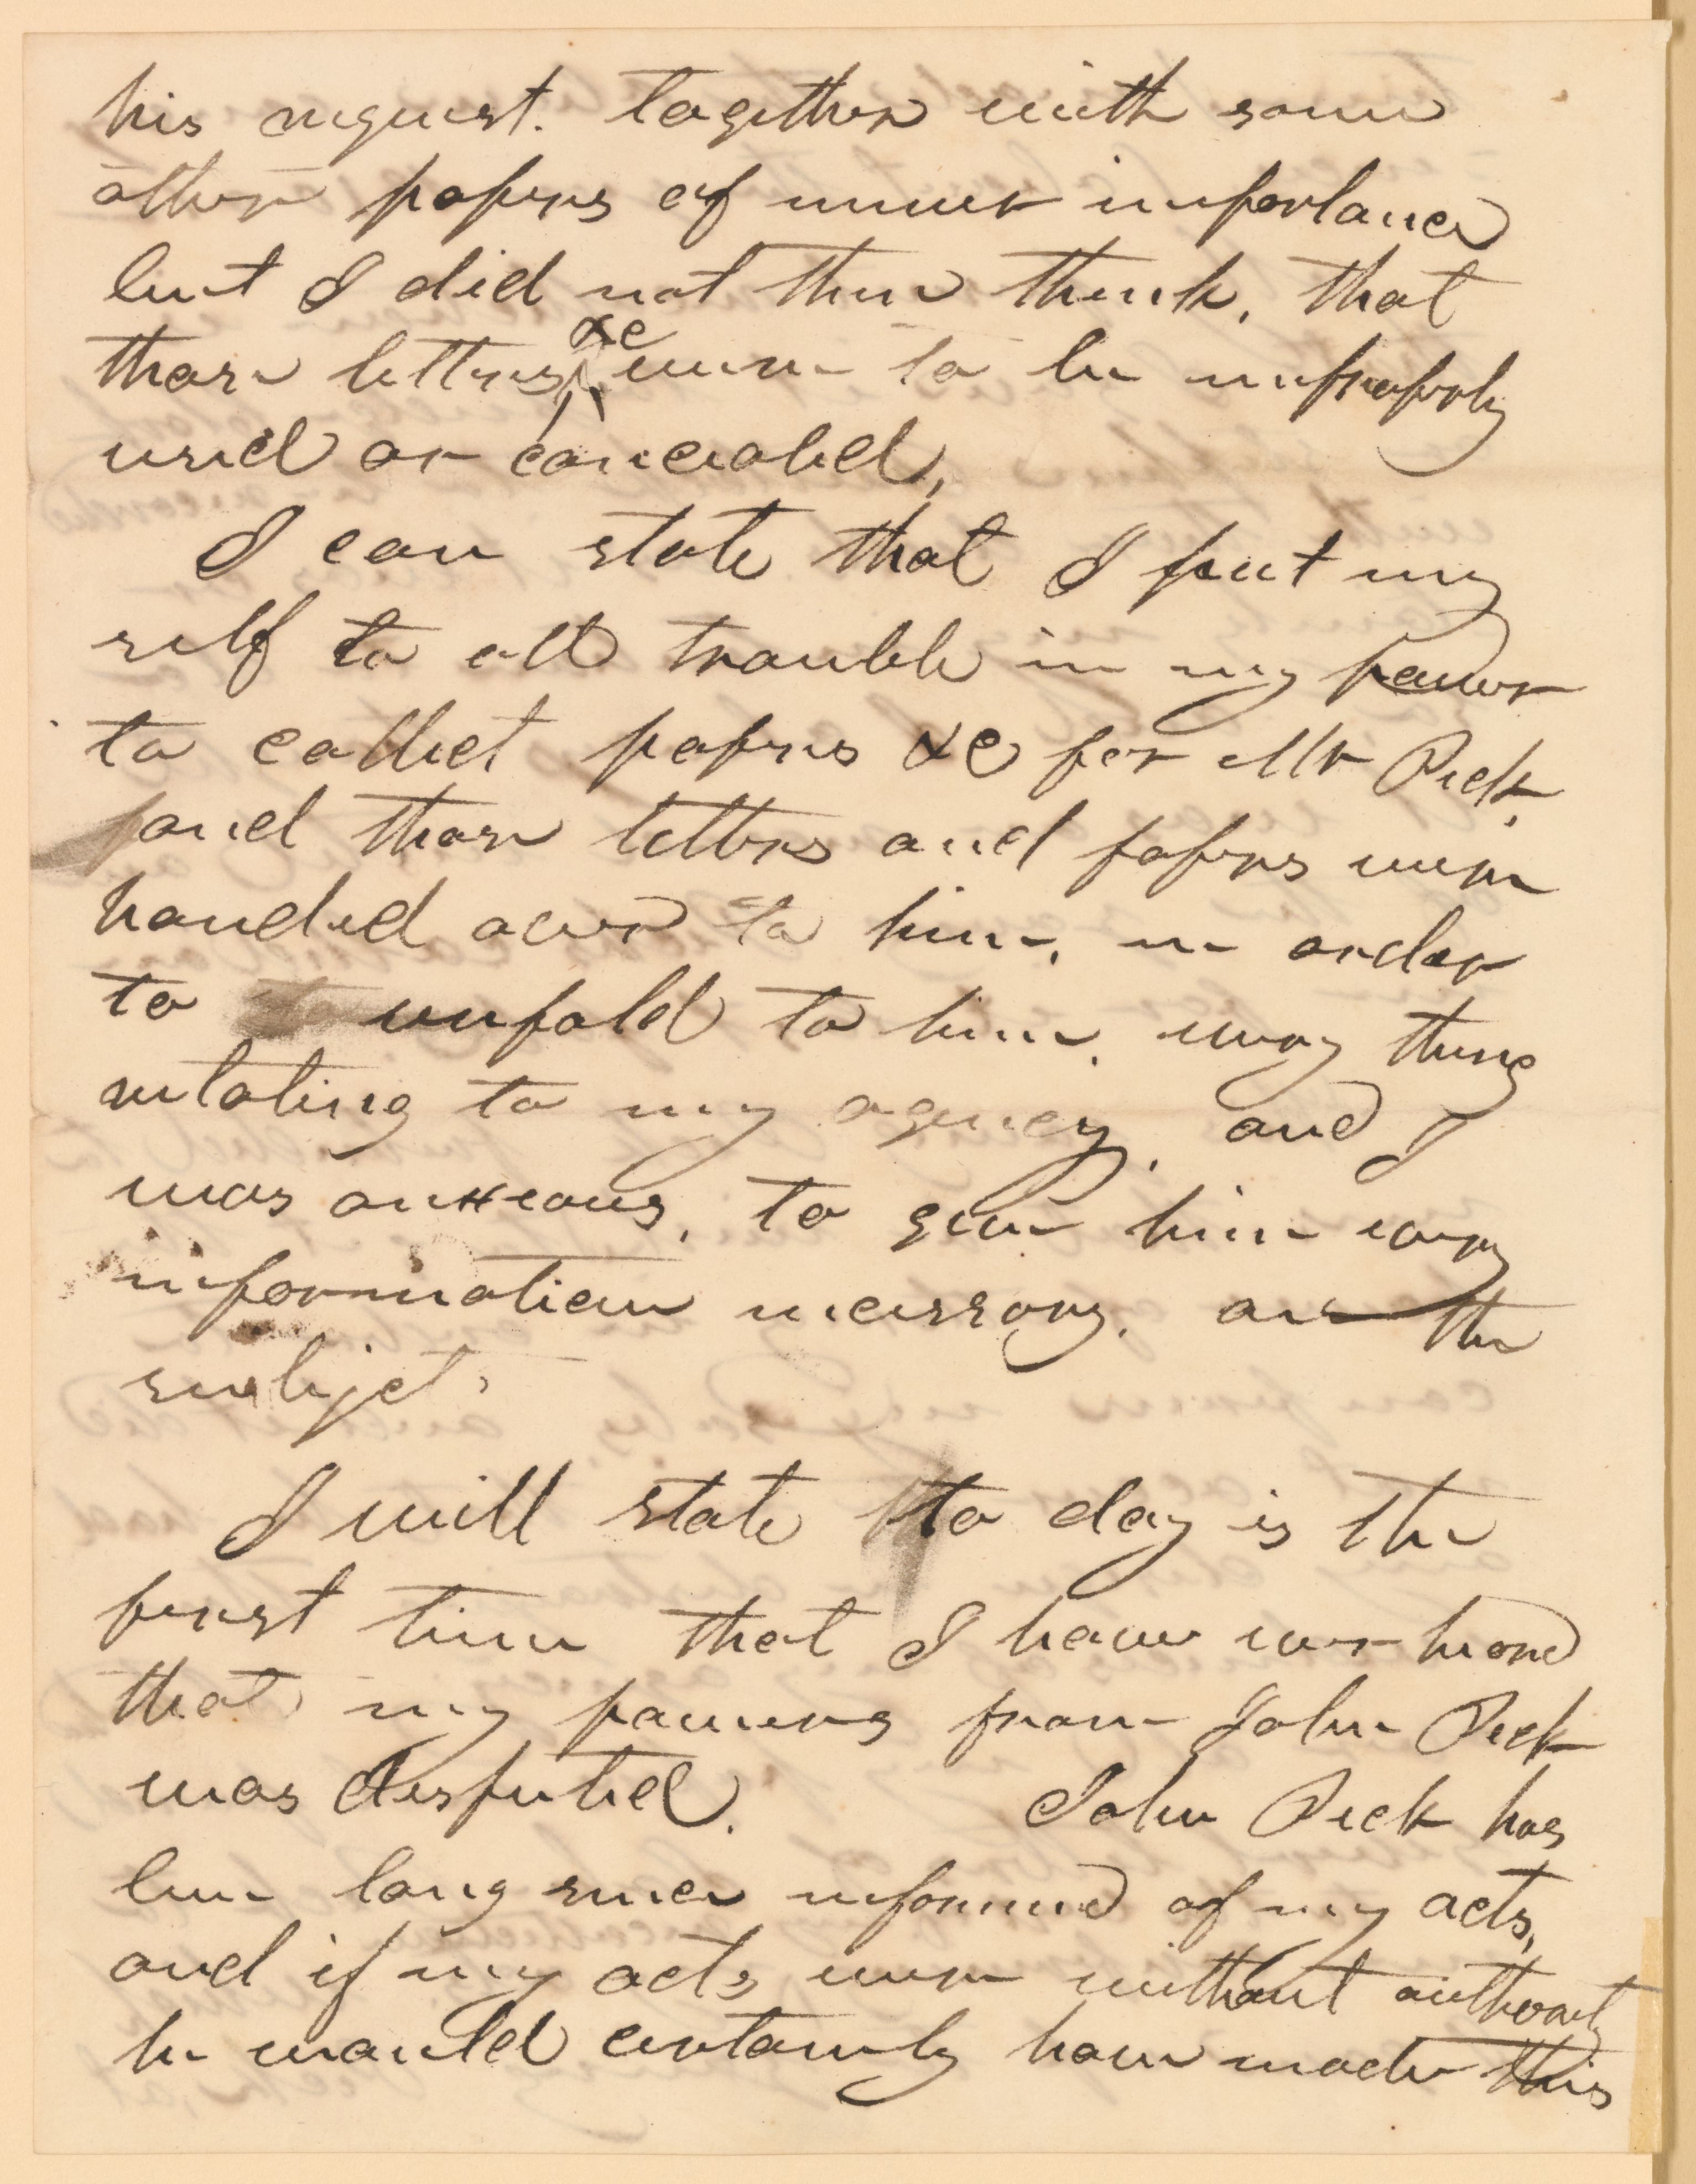 his request. together with some
other papers of minor importance
but I did not then think, that
those letters &c were to be improperly
used or concealed,
I can state that I put my
self to all trouble in my power
to collect papers &c for Mr Peck,
and those letters and papers were
handed over to him, in order
to unfold to him, every thing
relating to my agency, and I
was anxious, to give him every
information necessary, on the
subject.
I will state to day is the
first time that I have ever heard
that my powers from John Peck
was disputed. John Peck has
been long since informed of my acts,
and if my acts were without authority
he would certainly have made this